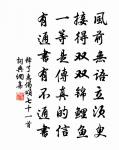 風前無語立須臾
接得雙雙錦鯉魚
一等是傳真的信
有通書有不通書
釋了惠偈頌七十一首
詞典網集